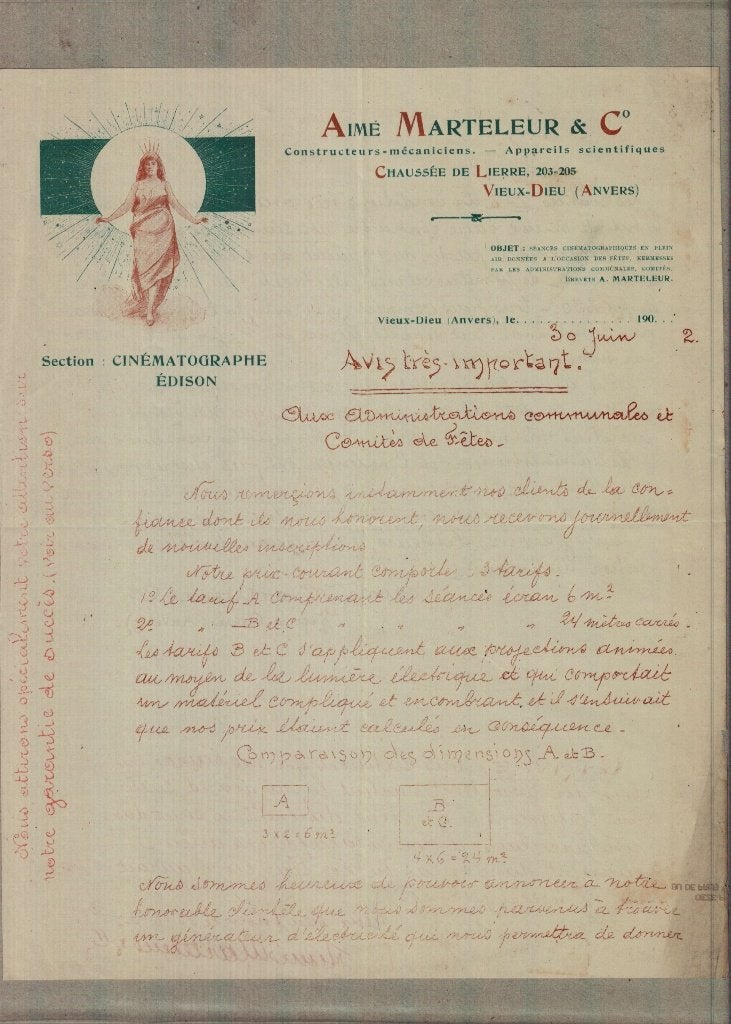 AIMÉ MARTELEUR & Cº
Constructeurs-mécaniciens. — Appareils scientifiques
CHAUSSÉE DE LIERRE, 203-205
VIEUX-DIEU (ANVERS)
OBJET : SÉANCES CINÉMATOGRAPHIQUES EN PLEIN
AIR DONNÉES A L'OCCASION DES FÊTES, KERMESSES
PAR LES ADMINISTRATIONS COMMUNALES, COMITÉS.
BREVETS A. MARTELEUR.
Vieux-Dieu (Anvers), le. . . . . . . . . . . . . . . 190. . .
30 Juin 2.
Section : CINÉMATOGRAPHE
ÉDISON
Avis très-important.
Aux Administrations communales et
Comités de Fêtes.-
Nous remerçions instamment nos clients de la con=
fiance dont ils nous honorent, nous recevons journellement
de nouvelles inscriptions
Notre prix-courant comporte : 3 tarifs.
1º Le tarif A comprenant les séances écran 6 m²
2º " — B et C " " " " 24 mètres carrés.
Les tarifs B et C s'appliquent aux projections animées
au moyen de la lumière électrique et qui comportait
un matériel compliqué et encombrant, et il s'ensuivait
que nos prix étaient calculés en conséquence.-
Comparaison des dimensions A et B.
A
B
et C.
3 x 2 = 6 m²
4 x 6 = 24 m²
Nous sommes heureux de pouvoir annoncer à notre
honorable clientèle que nous sommes parvenus à trouver
un générateur d'électricité qui nous permettra de donner
Nous attirons spécialement votre attention sur
notre garantie de succès. (voir au verso)